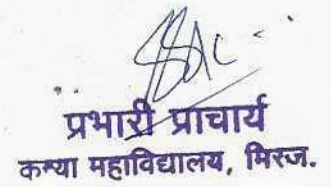 प्रभारी प्राचार्य
कन्या महाविद्यालय, मिरज.